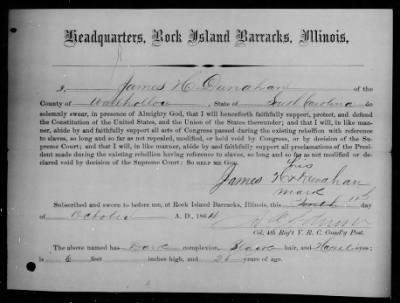 Headquarters, Rock Island Barracks, Illinois,
I, James H Dunahan of the
County of , State of South Carolina do
solemnly swear, in presence of Almighty God, that I will henceforth faithfully support, protect, and defend
the Constitution of the United States, and the Union of the States thereunder; and that I will, in like man-
ner, abide by and faithfully support all acts of Congress passed during the existing rebellion with reference
to slaves, so long and so far as not repealed, modified, or held void by Congress, or by decision of the Su-
preme Court; and that I will, in like manner, abide by and faithfully support all proclamations of the Pres-
ident made during the existing rebellion having reference to slaves, so long and so far as not modified or de-
clared void by decision of the Supreme Court: So help me God.
his
James H X Dunahan
mark
Subscribed and sworn to before me, at Rock Island Barracks, Illinois, this
October A. D., 1864
Col. 4th Reg't V. R. C. Comd'g Post.
The above named has Dark complexion, hair, and Hazel eyes;
is 6 feet inches high, and 26 years of age.